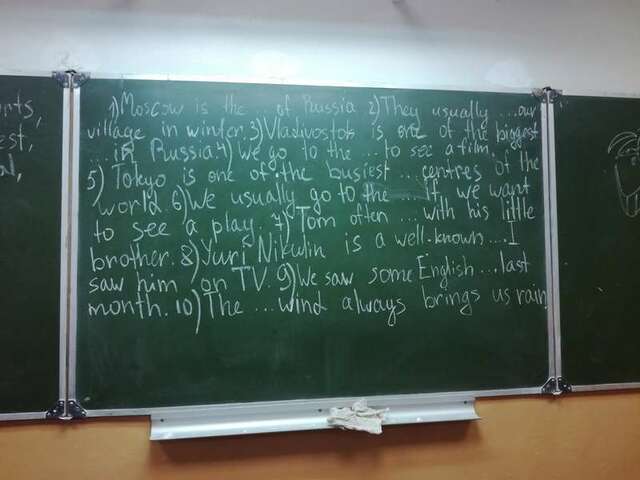 1) Moscow is the of Russia 2) They usually ... our
village in winter. 3) Vladivostok is one of the biggest
... in Russia. 4) We go to the ... to see a film.
5) Tokyo is one of the busiest ... centres of the
world. 6) We usually go to the ... if we want
to see a play. 7) Tom often ... with his little
brother. 8) Yuri Nikulin is a well-known ... I
saw him on TV. 9) We saw some English ... last
month. 10) The ... wind always brings us rain